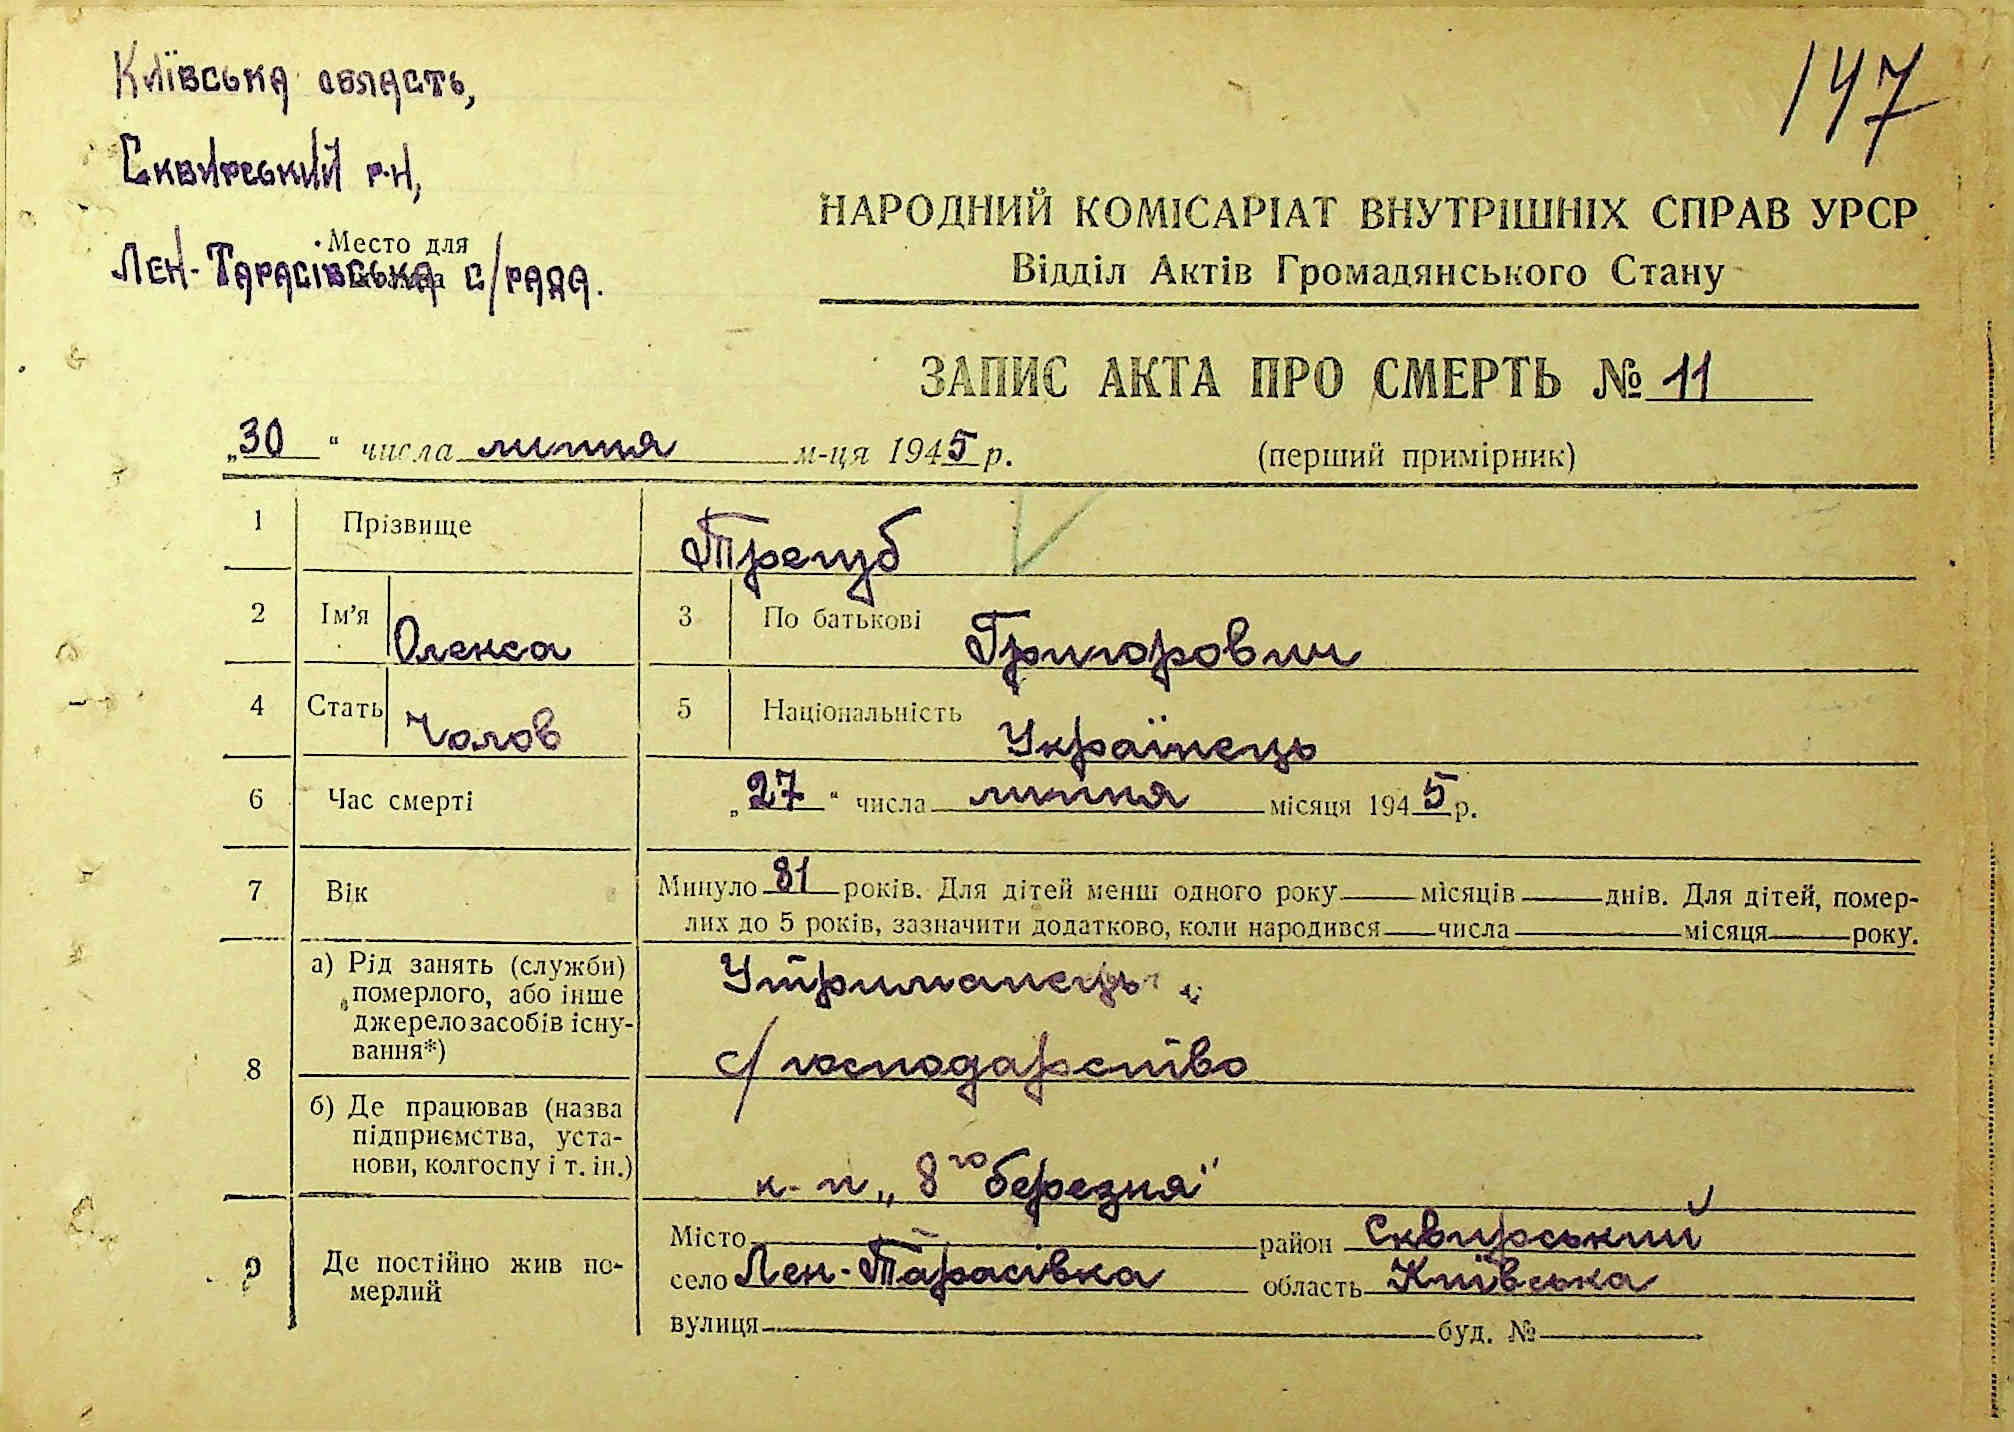 Київська область,
147
Сквирський р-н,
Место для
Лен-Тарасівська с/рада.
НАРОДНИЙ КОМІСАРІАТ ВНУТРІШНІХ СПРАВ УРСР
Відділ Актів Громадянського Стану
ЗАПИС АКТА ПРО СМЕРТЬ № 11
„30“ числа липня м-ця 1945 р.
(перший примірник)
1 Прізвище Трегуб
2 Ім’я Олекса 3 По батькові Григорович
4 Стать Чолов 5 Національність Українець
6 Час смерті „27“ числа липня місяця 1945 р.
7 Вік Минуло 81 років. Для дітей менш одного року — місяців — днів. Для дітей, помер-
лих до 5 років, зазначити додатково, коли народився — числа — місяця — року.
8 а) Рід занять (служби) померлого, або інше джерело засобів існу-вання*)
Утриманець
с/господарство
б) Де працював (назва підприємства, уста-нови, колгоспу і т. ін.)
к-п „8го березня"
9 Де постійно жив по-мерлий
Місто — район Сквирський
село Лен-Тарасівка область Київська
вулиця — буд. № —